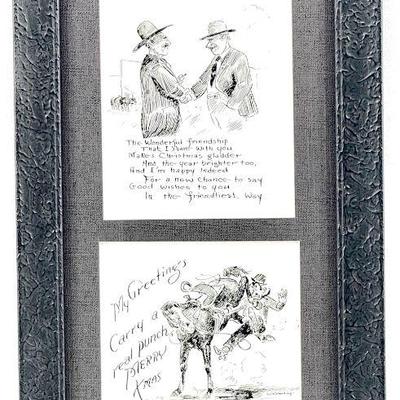 The Wonderful friendship
That I share with you
Makes Christmas gladder
And the year brighter too,
And I'm happy indeed
For a new chance to say
Good wishes to you
In the friendliest way
My Greeting's
Carry a
real punch
MERRY
Xmas